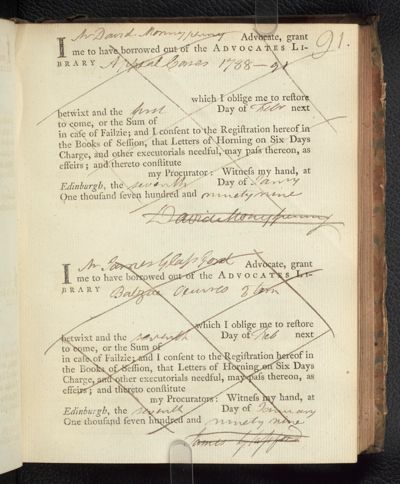 91.
I Mr David Monnypenny Advocate, grant
me to have borrowed out of the ADVOCATES LI-
BRARY Appeal Cases 1788-91
which I oblige me to reſtore
betwixt and the first Day of Febr next
to come, or the Sum of
in caſe of Failzie; and I conſent to the Regiſtration hereof in
the Books of Seſſion, that Letters of Horning on Six Days
Charge, and other executorials needful, may paſs thereon, as
effeirs; and thereto conſtitute
my Procurator: Witneſs my hand, at
Edinburgh, the seventh Day of Janry
One thouſand ſeven hundred and ninety nine
David Monypenny
I Mr James Glassford Advocate, grant
me to have borrowed out of the ADVOCATES LI-
BRARY Balzac Oeuvres
which I oblige me to reſtore
betwixt and the seventh Day of Feb next
to come, or the Sum of
in caſe of Failzie; and I conſent to the Regiſtration hereof in
the Books of Seſſion, that Letters of Horning on Six Days
Charge, and other executorials needful, may paſs thereon, as
effeirs; and thereto conſtitute
my Procurators: Witneſs my hand, at
Edinburgh, the seventh Day of January
One thouſand ſeven hundred and ninety nine
James Glassford